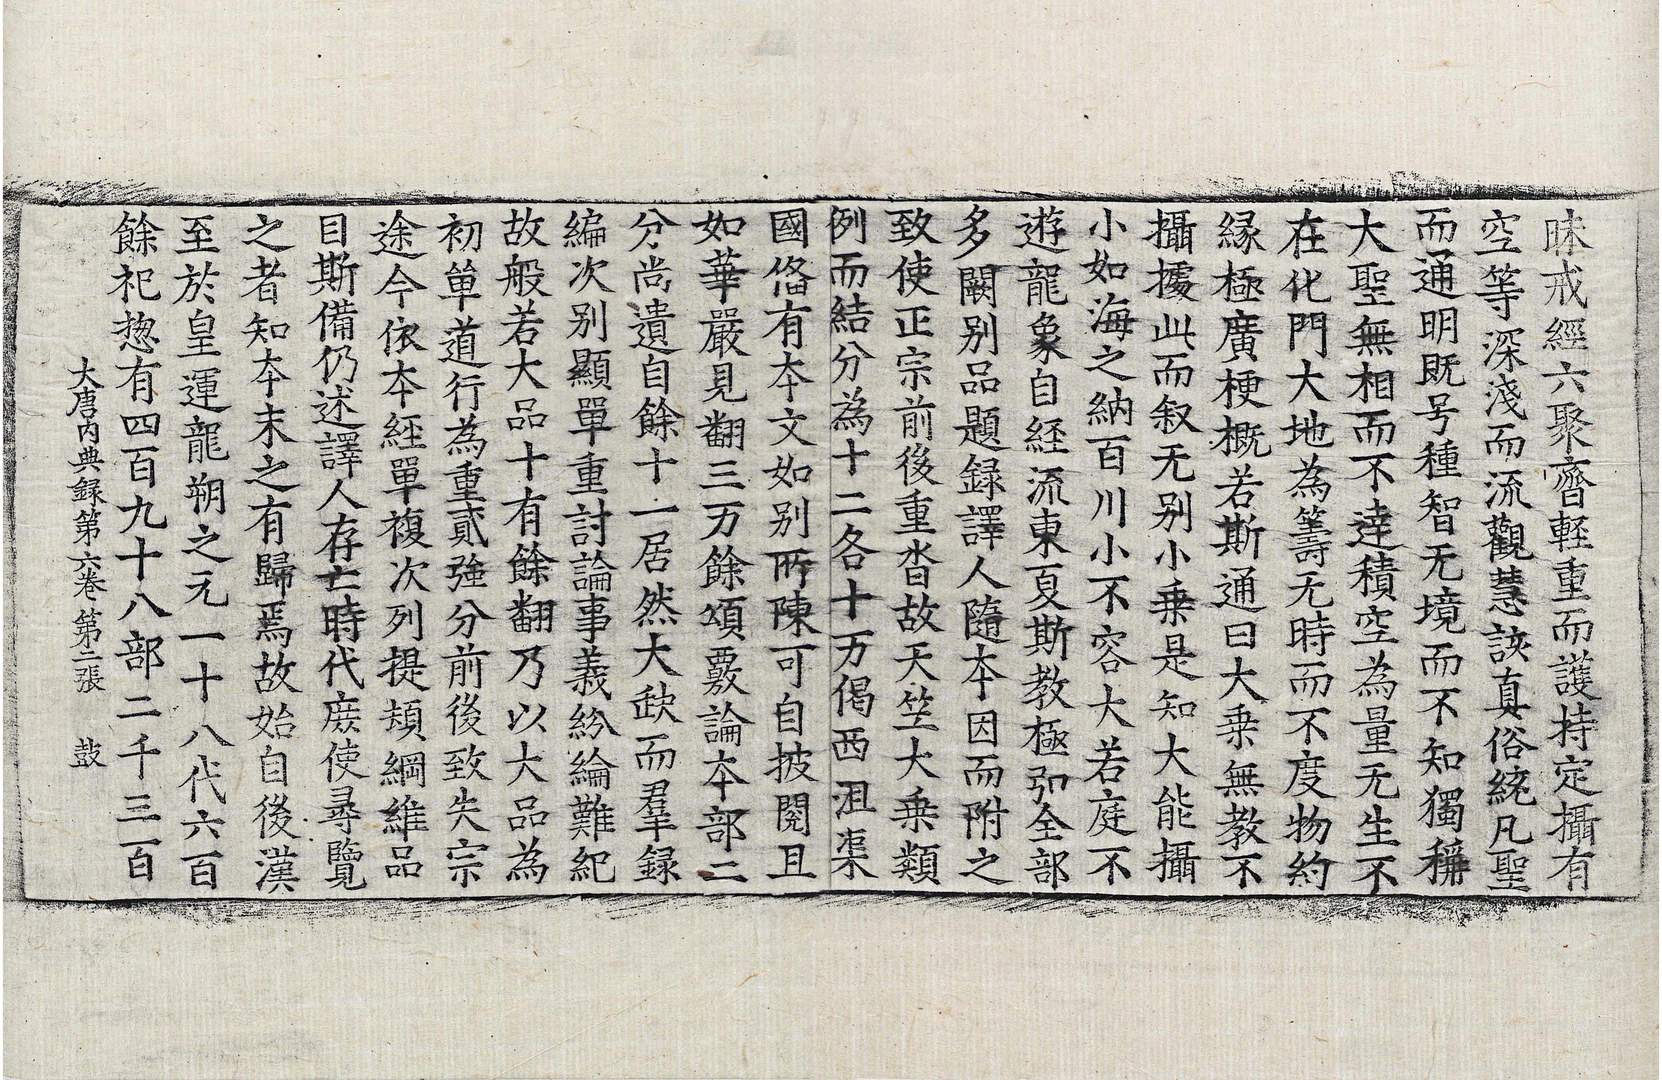 昧戒經六聚齊輕重而護持定攝有
空等深淺而流觀慧談真俗統凡聖
而通明既号種智无境而不知獨稱
大聖無相而不達積空為量无生不
在化門大地為籌无時而不度物約
緣極廣梗概若斯通曰大乗無教不
攝攄此而叙无别小乗是知大能攝
小如海之納百川小不容大若庭不
遊龍象自経流東夏斯教極弘全部
多闕别品題録譯人隨本因而附之
致使正宗前後重沓故天竺大乗類
例而結分為十二各十万偈西沮渠
國俻有夲文如别所陳可自披閱且
如華嚴見翻三万餘頌覈論夲部二
分尚遺自餘十一居然大缺而羣録
編次别顯單重討論事義紛綸難紀
故般若大品十有餘翻乃以大品為
初單道行為重貳強分前後致失宗
途今依夲經單複次列提頍綱維品
目斯備仍述譯人存亡時代庻使尋覽
之者知夲末之有歸焉故始自後漢
至於皇運龍朔之元一十八代六百
餘祀惣有四百九十八部二千三百
大唐内典録第六卷 第二張 鼓